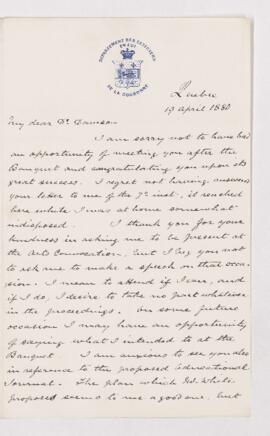 DEPARTEMENT DES
EN LOI
DE LA COURONNE
Quebec
19 April 1880
My dear Dr Dawson
I am sorry not to have had
an opportunity of meeting you after the
Banquet and congratulating you upon its
great success. I regret not having answered
your letter to me of the 7th inst. it reached
here while I was at home somewhat
indisposed. I thank you for your
kindness in asking me to be present at
the Arts Convocation, but I beg you not
to ask me to make a speech on that occa-
sion. I mean to attend if I can, and
if I do, I desire to take no part whatever
in the proceedings. On some future
occasion I may have an opportunity
of saying what I intended to at the
Banquet. I am anxious to see you also
in reference to the proposed Educational
Journal. The plan which Mr. White
proposed seems to me a good one, but